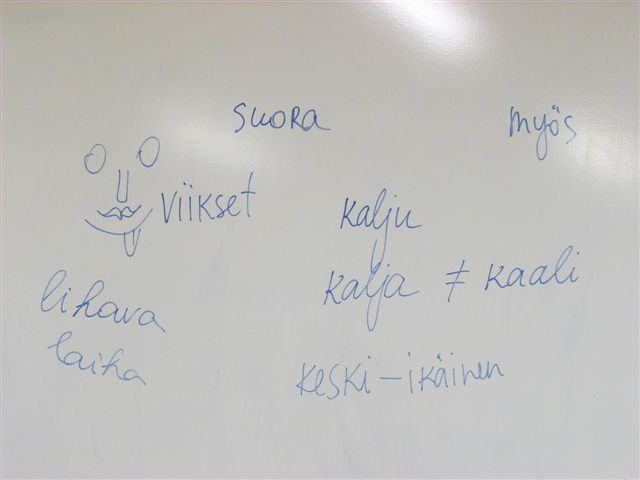 suora
myös
viikset
kalju
kalja ≠ kaali
lihava
laiha
keski-ikäinen